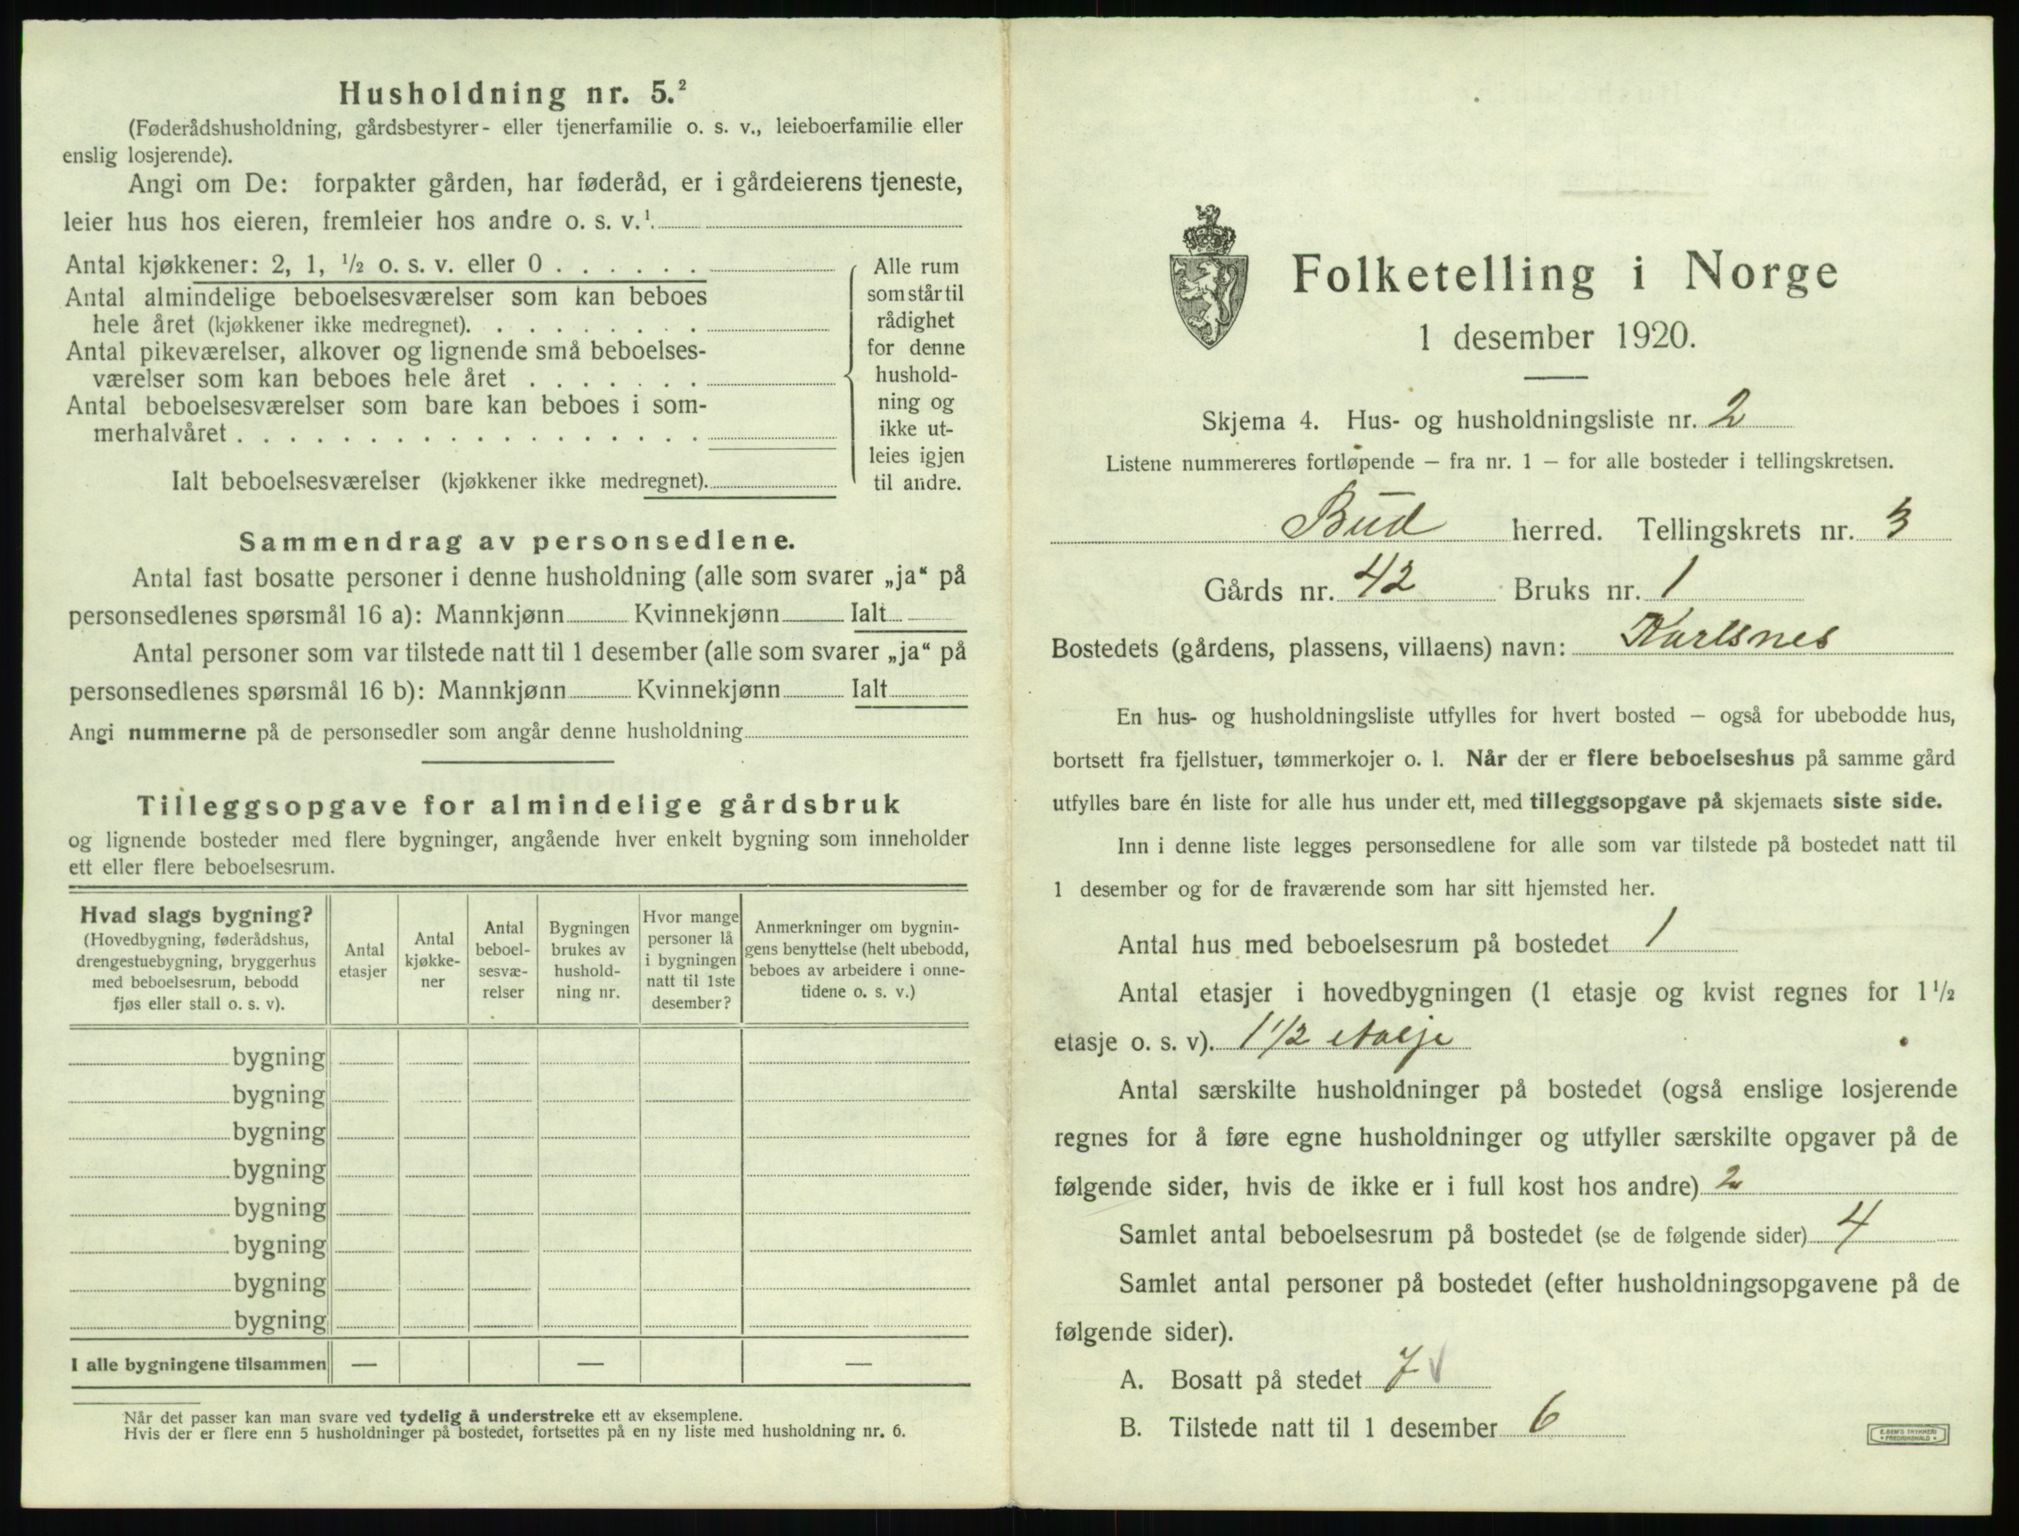 Husholdning nr. 5.²
(Føderådshusholdning, gårdsbestyrer- eller tjenerfamilie o. s. v., leieboerfamilie eller
enslig losjerende).
Angi om De: forpakter gården, har føderåd, er i gårdeierens tjeneste,
leier hus hos eieren, fremleier hos andre o. s. v.¹
Antal kjøkkener: 2, 1, ½ o. s. v. eller 0 . . . . . .
Antal almindelige beboelsesværelser som kan beboes
hele året (kjøkkener ikke medregnet). . . . . . . . .
Antal pikeværelser, alkover og lignende små beboelses-
værelser som kan beboes hele året . . . . . . .
Antal beboelsesværelser som bare kan beboes i som-
merhalvåret . . . . . . . . . . . . . . . . . .
Ialt beboelsesværelser (kjøkkener ikke medregnet).
Alle rum
som står til
rådighet
for denne
hushold-
ning og
ikke ut-
leies igjen
til andre.
Sammendrag av personsedlene.
Antal fast bosatte personer i denne husholdning (alle som svarer „ja“ på
personsedlenes spørsmål 16 a): Mannkjønn Kvinnekjønn Ialt
Antal personer som var tilstede natt til 1 desember (alle som svarer „ja“ på
personsedlenes spørsmål 16 b): Mannkjønn Kvinnekjønn Ialt
Angi nummerne på de personsedler som angår denne husholdning
Tilleggsopgave for almindelige gårdsbruk
og lignende bosteder med flere bygninger, angående hver enkelt bygning som inneholder
ett eller flere beboelsesrum.
Hvad slags bygning?
(Hovedbygning, føderådshus,
drengestuebygning, bryggerhus
med beboelsesrum, bebodd
fjøs eller stall o. s. v).
Antal
etasjer
Antal
kjøkke-
ner
Antal
beboel-
sesvæ-
relser
Bygningen
brukes av
hushold-
ning nr.
Hvor mange
personer lå
i bygningen
natt til 1ste
desember?
Anmerkninger om bygnin-
gens benyttelse (helt ubebodd,
beboes av arbeidere i onne-
tidene o. s. v.)
bygning
bygning
bygning
bygning
bygning
bygning
bygning
bygning
I alle bygningene tilsammen — — —
Når det passer kan man svare ved tydelig å understreke ett av eksemplene.
Hvis der er flere enn 5 husholdninger på bostedet, fortsettes på en ny liste med husholdning nr. 6.
Folketelling i Norge
1 desember 1920.
Skjema 4. Hus- og husholdningsliste nr. 2
Listene nummereres fortløpende – fra nr. 1 – for alle bosteder i tellingskretsen.
Bud herred. Tellingskrets nr. 3
Gårds nr. 42 Bruks nr. 1
Bostedets (gårdens, plassens, villaens) navn: Karlsnes
En hus- og husholdningsliste utfylles for hvert bosted – også for ubebodde hus,
bortsett fra fjellstuer, tømmerkojer o. l. Når der er flere beboelseshus på samme gård
utfylles bare én liste for alle hus under ett, med tilleggsopgave på skjemaets siste side.
Inn i denne liste legges personsedlene for alle som var tilstede på bostedet natt til
1 desember og for de fraværende som har sitt hjemsted her.
Antal hus med beboelsesrum på bostedet 1
Antal etasjer i hovedbygningen (1 etasje og kvist regnes for 1½
etasje o. s. v). 1 1/2 etasje
Antal særskilte husholdninger på bostedet (også enslige losjerende
regnes for å føre egne husholdninger og utfyller særskilte opgaver på de
følgende sider, hvis de ikke er i full kost hos andre) 2
Samlet antal beboelsesrum på bostedet (se de følgende sider) 4
Samlet antal personer på bostedet (efter husholdningsopgavene på de
følgende sider).
A. Bosatt på stedet 7 √
B. Tilstede natt til 1 desember 6